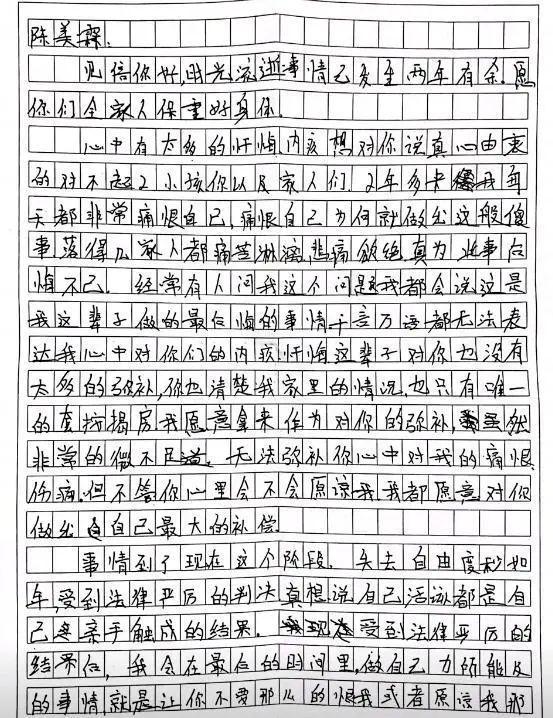 陈美霖.
见信你好,时光流逝事情已发生两年有余.愿
你们全家人保重好身体.
心中有太多的忏悔内疚想对你说真心由衷
的对不起2小孩你以及家人们.2年多来我每
天都非常痛恨自己,痛恨自己为何就做出这般傻
事.落得几家人都痛苦淋漓,悲痛欲绝真为此事后
悔不已.经常有人问我这个问题我都会说这是
我这辈子做的最后悔的事情千言万语都无法表
达我心中对你们的内疚忏悔这辈子对你也没有
太多的弥补,你也清楚我家里的情况.也只有唯一
的套按揭房我愿意拿来作为对你的弥补,虽然
非常的微不足道.无法弥补你心中对我的痛恨.
伤痛.但不管你心里会不会原谅我.我都愿意对你
做出自己最大的补偿.
事情到了现在这个阶段.失去自由度秒如
年,受到法律严厉的判决真想说自己活该都是自
己亲手触成的结果.受到法律严厉的
结果后,我会在最后的时间里,做自己力所能及
的事情,就是让你不要那么的恨我或者原谅我那